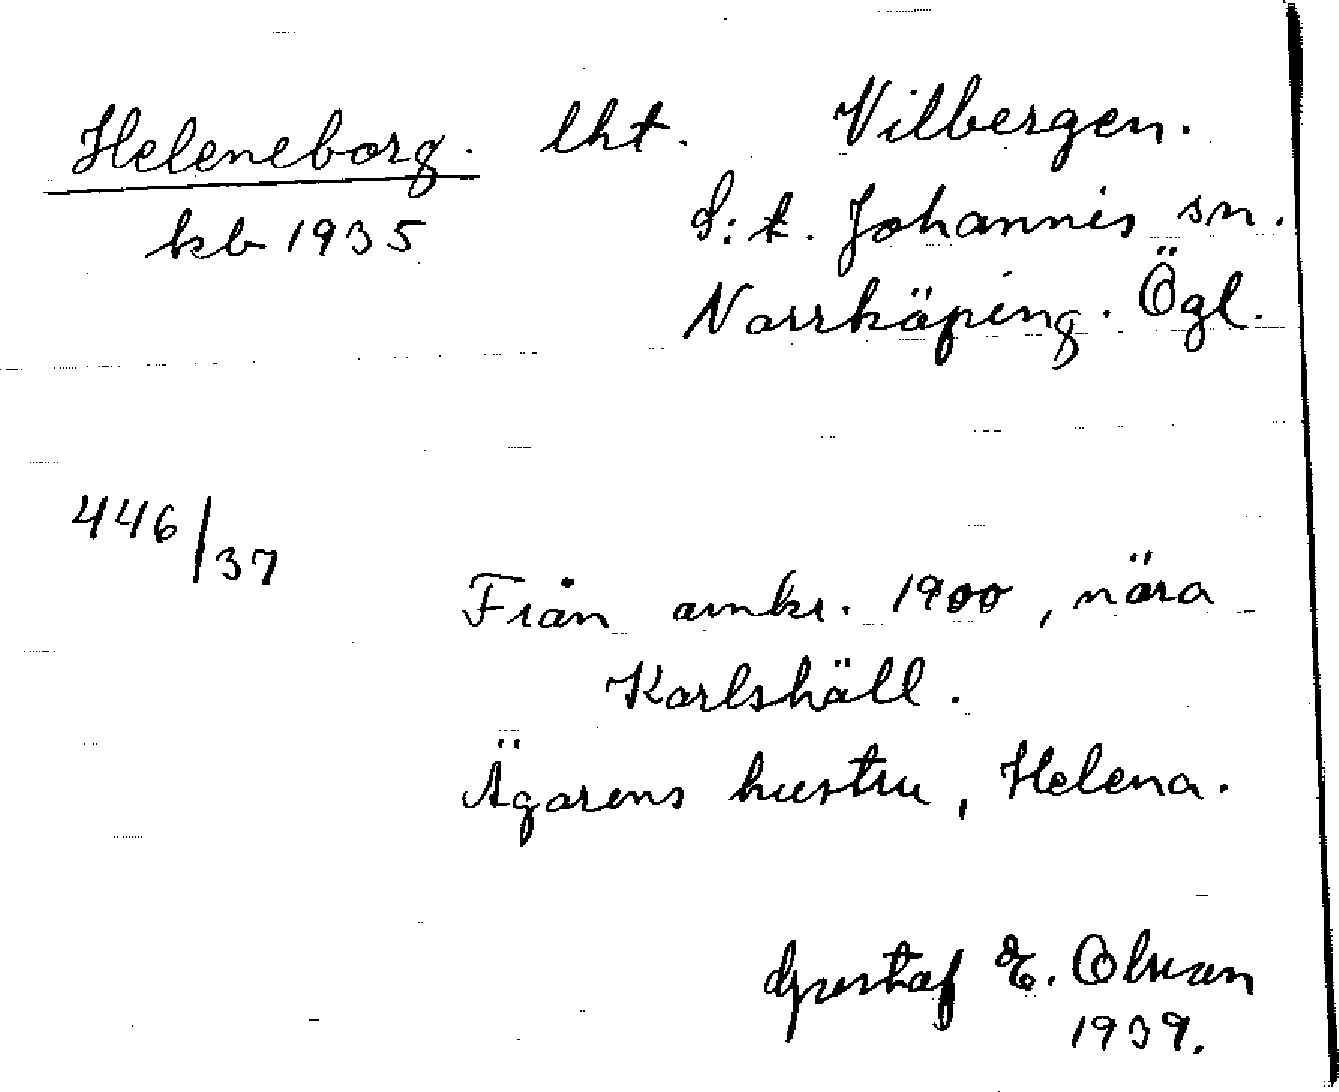 Heleneborg. lht. Vilbergen.
kb 1935
S:t. Johannis sn.
Norrköping. Ögl.
446/37
Från omkr. 1900, nära
Karlshäll.
Ägarens hustru, Helena.
Gustaf E. Olson
1939.